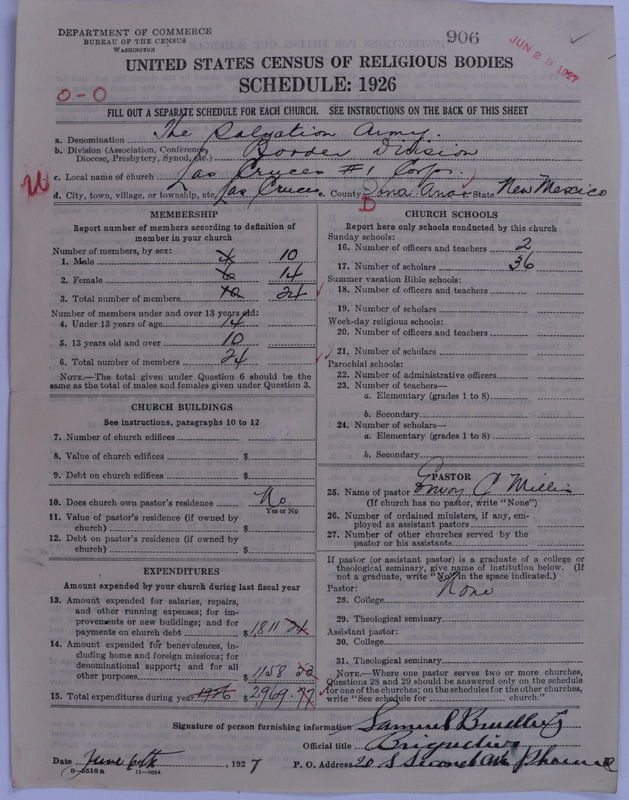 DEPARTMENT OF COMMERCE
BUREAU OF THE CENSUS
WASHINGTON
906
JUN 29 1927
UNITED STATES CENSUS OF RELIGIOUS BODIES
SCHEDULE: 1926
0-0
FILL OUT A SEPARATE SCHEDULE FOR EACH CHURCH. SEE INSTRUCTIONS ON THE BACK OF THIS SHEET
a. Denomination The Salvation Army.
b. Division (Association, Conference, Diocese, Presbytery, Synod, etc.) Border Division
c. Local name of church Las Cruces #1 Corps.
U
d. City, town, village, or township, etc. Las Cruces e. County Dona Anas State New Mexico
D
MEMBERSHIP
Report number of members according to definition of
member in your church
Number of members, by sex:
1. Male 4 10
2. Female 6 14
3. Total number of members 10 24
Number of members under and over 13 years old:
4. Under 13 years of age 14
5. 13 years old and over 10
6. Total number of members 24
NOTE.—The total given under Question 6 should be the
same as the total of males and females given under Question 3.
CHURCH BUILDINGS
See instructions, paragraphs 10 to 12
7. Number of church edifices
8. Value of church edifices $
9. Debt on church edifices $
10. Does church own pastor's residence No
Yes or No
11. Value of pastor's residence (if owned by
church) $
12. Debt on pastor's residence (if owned by
church) $
EXPENDITURES
Amount expended by your church during last fiscal year
13. Amount expended for salaries, repairs,
and other running expenses; for im-
provements or new buildings; and for
payments on church debt $1,811 24
14. Amount expended for benevolences, in-
cluding home and foreign missions; for
denominational support; and for all
other purposes $1158 53
15. Total expenditures during year 1926 $2969.77
CHURCH SCHOOLS
Report here only schools conducted by this church
Sunday schools:
16. Number of officers and teachers 2
17. Number of scholars 36
Summer vacation Bible schools:
18. Number of officers and teachers
19. Number of scholars
Week-day religious schools:
20. Number of officers and teachers
21. Number of scholars
Parochial schools:
22. Number of administrative officers
23. Number of teachers—
a. Elementary (grades 1 to 8)
b. Secondary
24. Number of scholars—
a. Elementary (grades 1 to 8)
b. Secondary
PASTOR
25. Name of pastor Envoy C
(If church has no pastor, write "None")
26. Number of ordained ministers, if any, em-
ployed as assistant pastors
27. Number of other churches served by the
pastor or his assistants
If pastor (or assistant pastor) is a graduate of a college or
theological seminary, give name of institution below. (If
not a graduate, write "No" in the space indicated.)
Pastor: None
28. College
29. Theological seminary
Assistant pastor:
30. College
31. Theological seminary
NOTE.—Where one pastor serves two or more churches,
Questions 28 and 29 should be answered only on the schedule
for one of the churches; on the schedules for the other churches,
write "See schedule for church."
Signature of person furnishing information Samuel Bradley
Official title Brigadier
Date June 6th, 1927 P. O. Address 20 S Second Ave Phoenix
8-5518a 11-9924